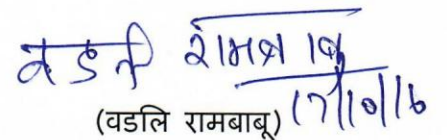 वडलि रामबाबू
17/10/16
(वडलि रामबाबू)